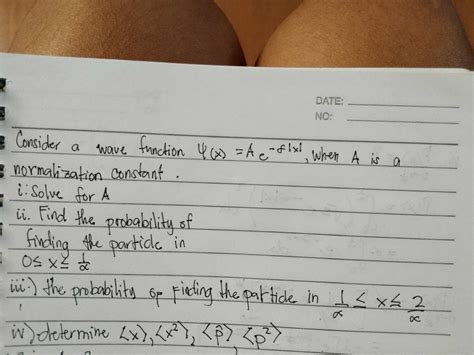 DATE:
NO:
Consider a wave function Ψ(x) = A e^-α|x|, when A is a
normalization constant.
i. Solve for A
ii. Find the probability of
finding the particle in
0 ≤ x ≤ 1/α
iii.) the probability of finding the particle in 1/α ≤ x ≤ 2/α
iv) determine ⟨x⟩, ⟨x²⟩, ⟨p̂⟩ ⟨p²⟩